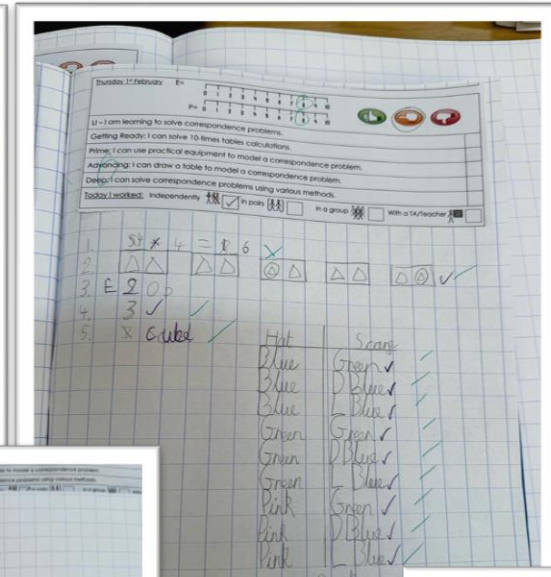 Thursday 1st February E= 0 1 2 3 4 5 6 7 8 9 10
P= 0 1 2 3 4 5 6 7 8 9 10
LI – I am learning to solve correspondence problems.
Getting Ready: I can solve 10-times tables calculations.
Prime: I can use practical equipment to model a correspondence problem.
Advancing: I can draw a table to model a correspondence problem.
Deep: I can solve correspondence problems using various methods.
Today I worked: Independently in pairs in a group With a TA/Teacher
1.
2.
3. E 2
4. 3
5. cube
Hat Scarf
Blue Green
Blue D Blue
Blue L Blue
Green Green
Green D Blue
Green L Blue
Pink Green
Pink D Blue
Pink L Blue